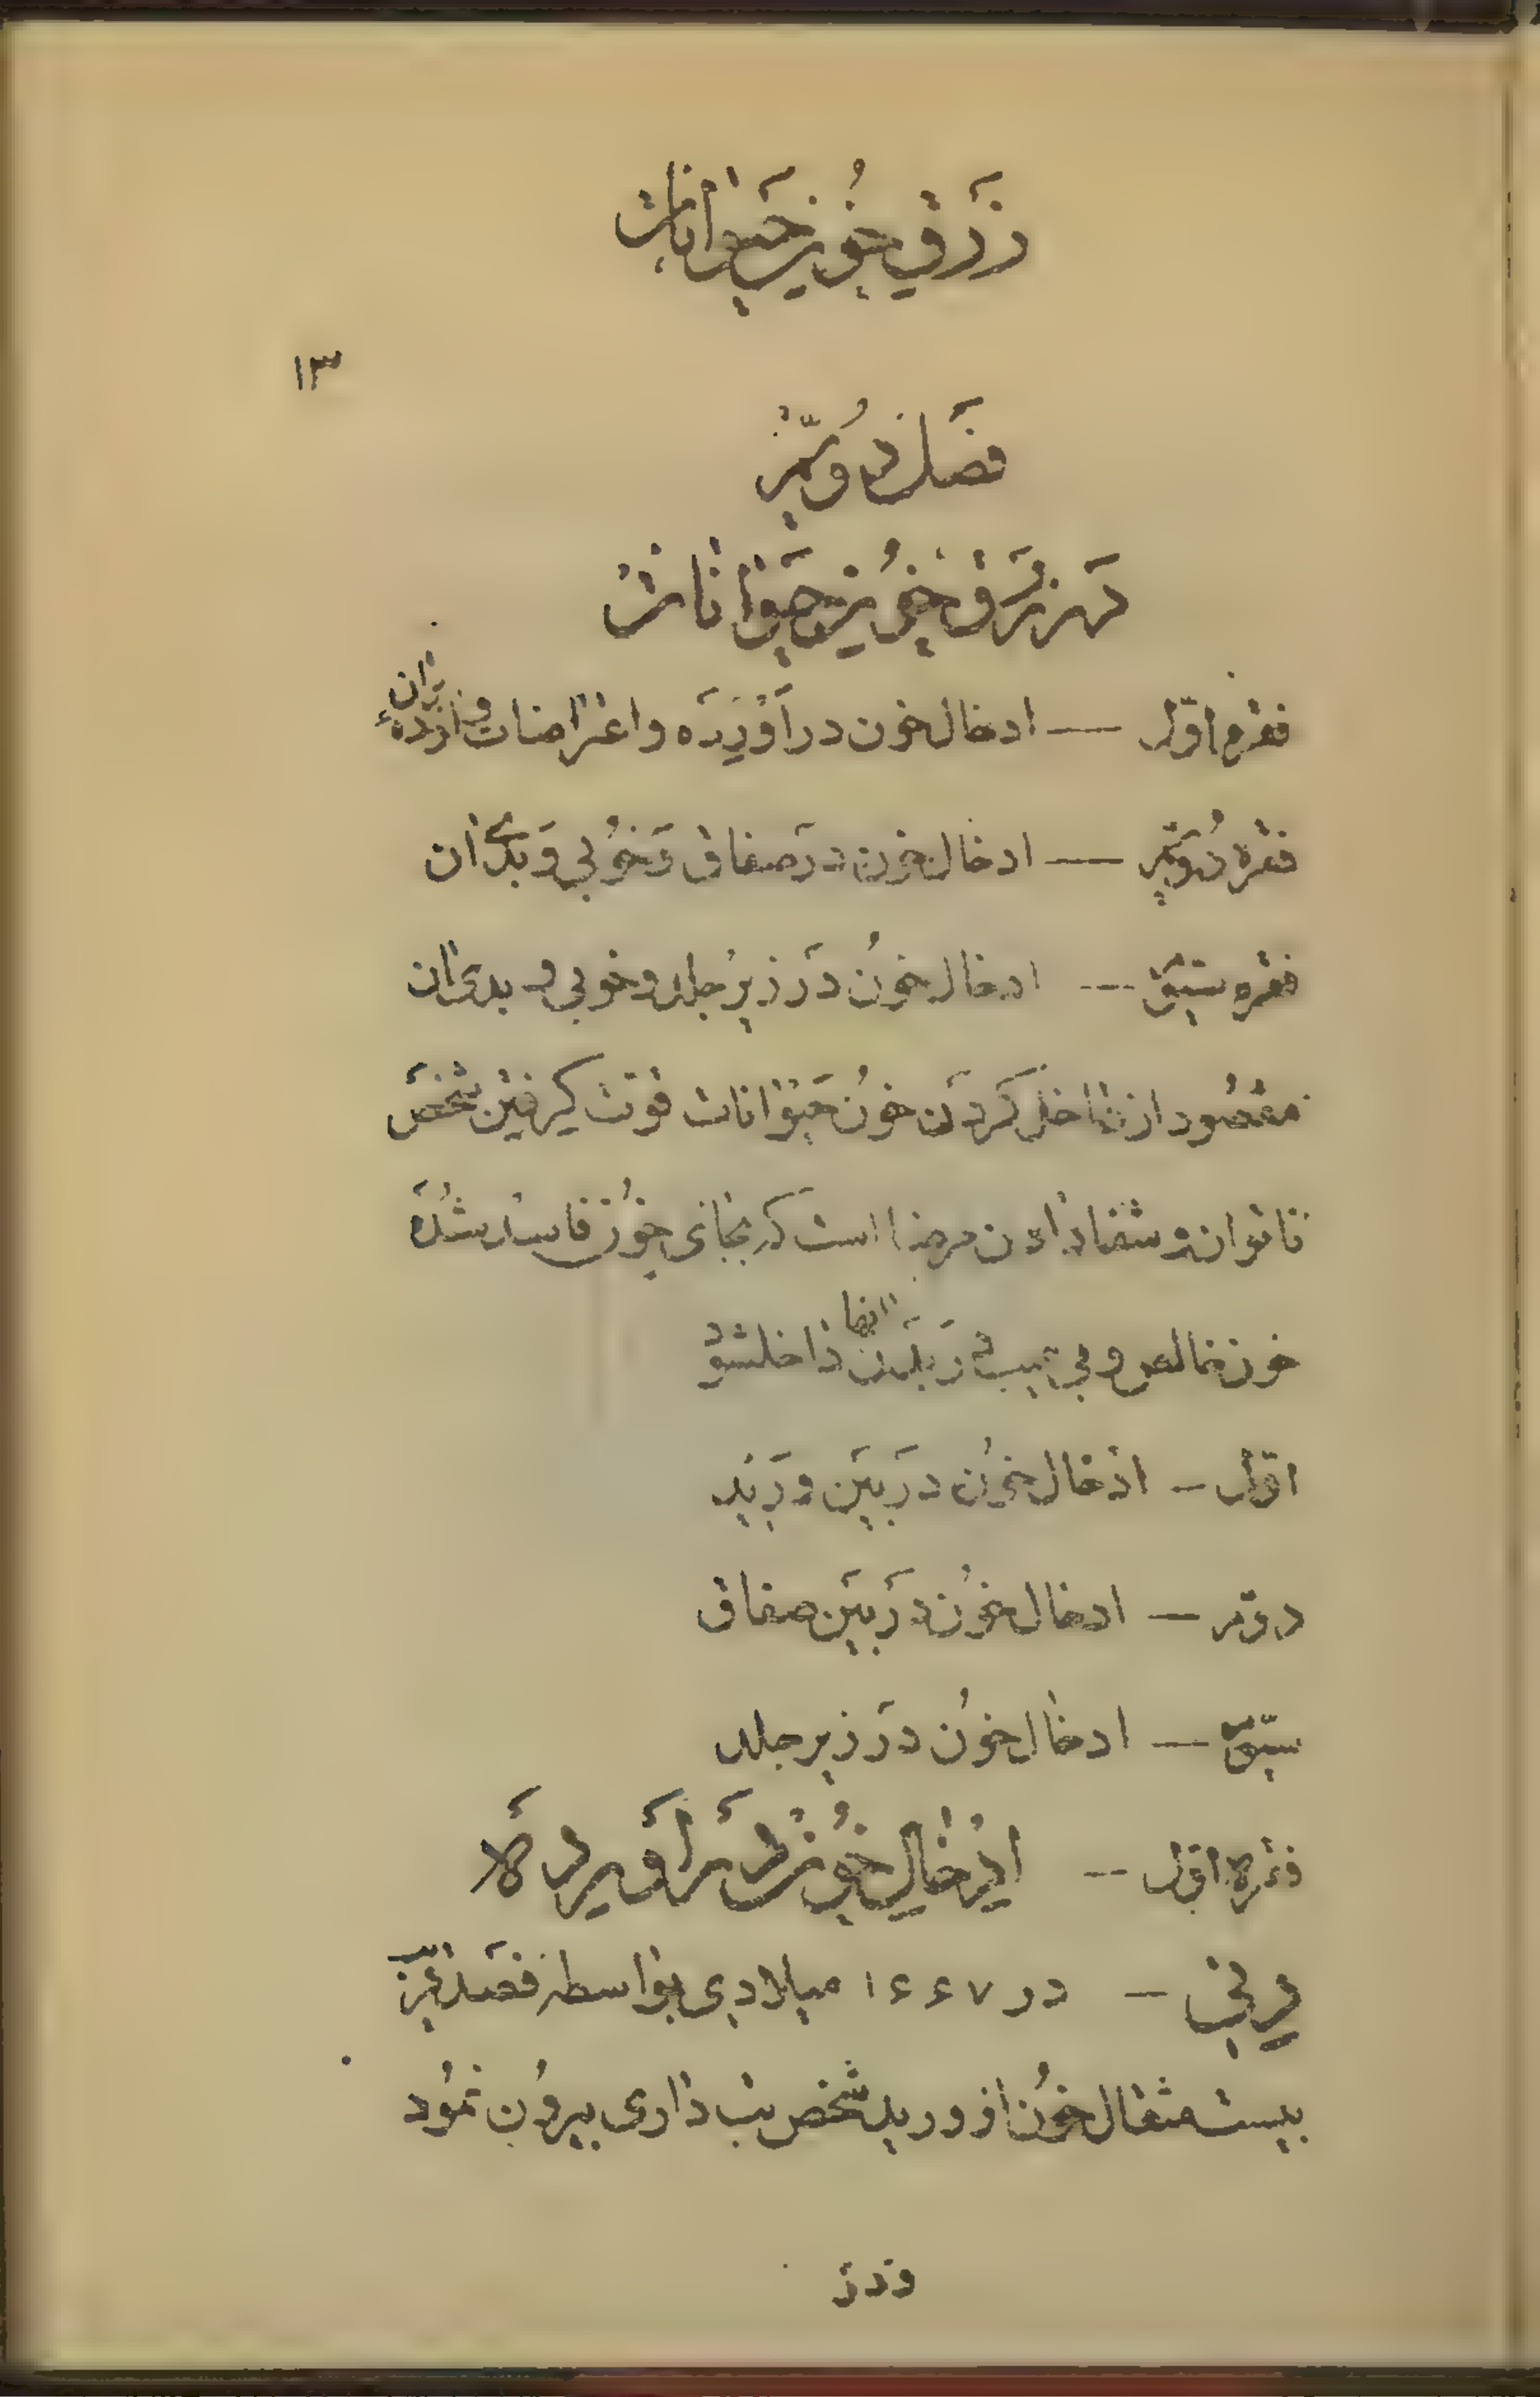 در زرق خون حیوانات
١٣
فصل دویم
در زرق خون حیوانات
فقره اوّل — ادخال خون در آوْرِدَه و اعتراضات وارده بران
فقره دُویّم — ادخال خون در صفاق وَ خُوبی وَ بدی ان
فقره سیّم — ادخال خوُن دَر زیر جلد و خوبی و بدی ان
مقصُود از داخل کردَن خوُن حَیوانات قوّت کیرفتن شخص
ناتوان و شفا دادن مرضا است که بجای خوُن فاسد شُدَه
خون خالص و بی عیب دَر بدَن انها داخل شود
اوّل — ادخال خوُن دَر بَیَن وَرید
دویّم — ادخال خوُن دَر بَیَن صفاق
سیّم — ادخال خوُن دَر زیر جلد
فقره اوّل — ادْخالِ خوُن دَر اَوردَه
دِنی — در ١۶۶٧ میلادی بواسطه فَصد
بیست مثقال خوُن از ورید شخص تب داری بیروُن نمُود
و در